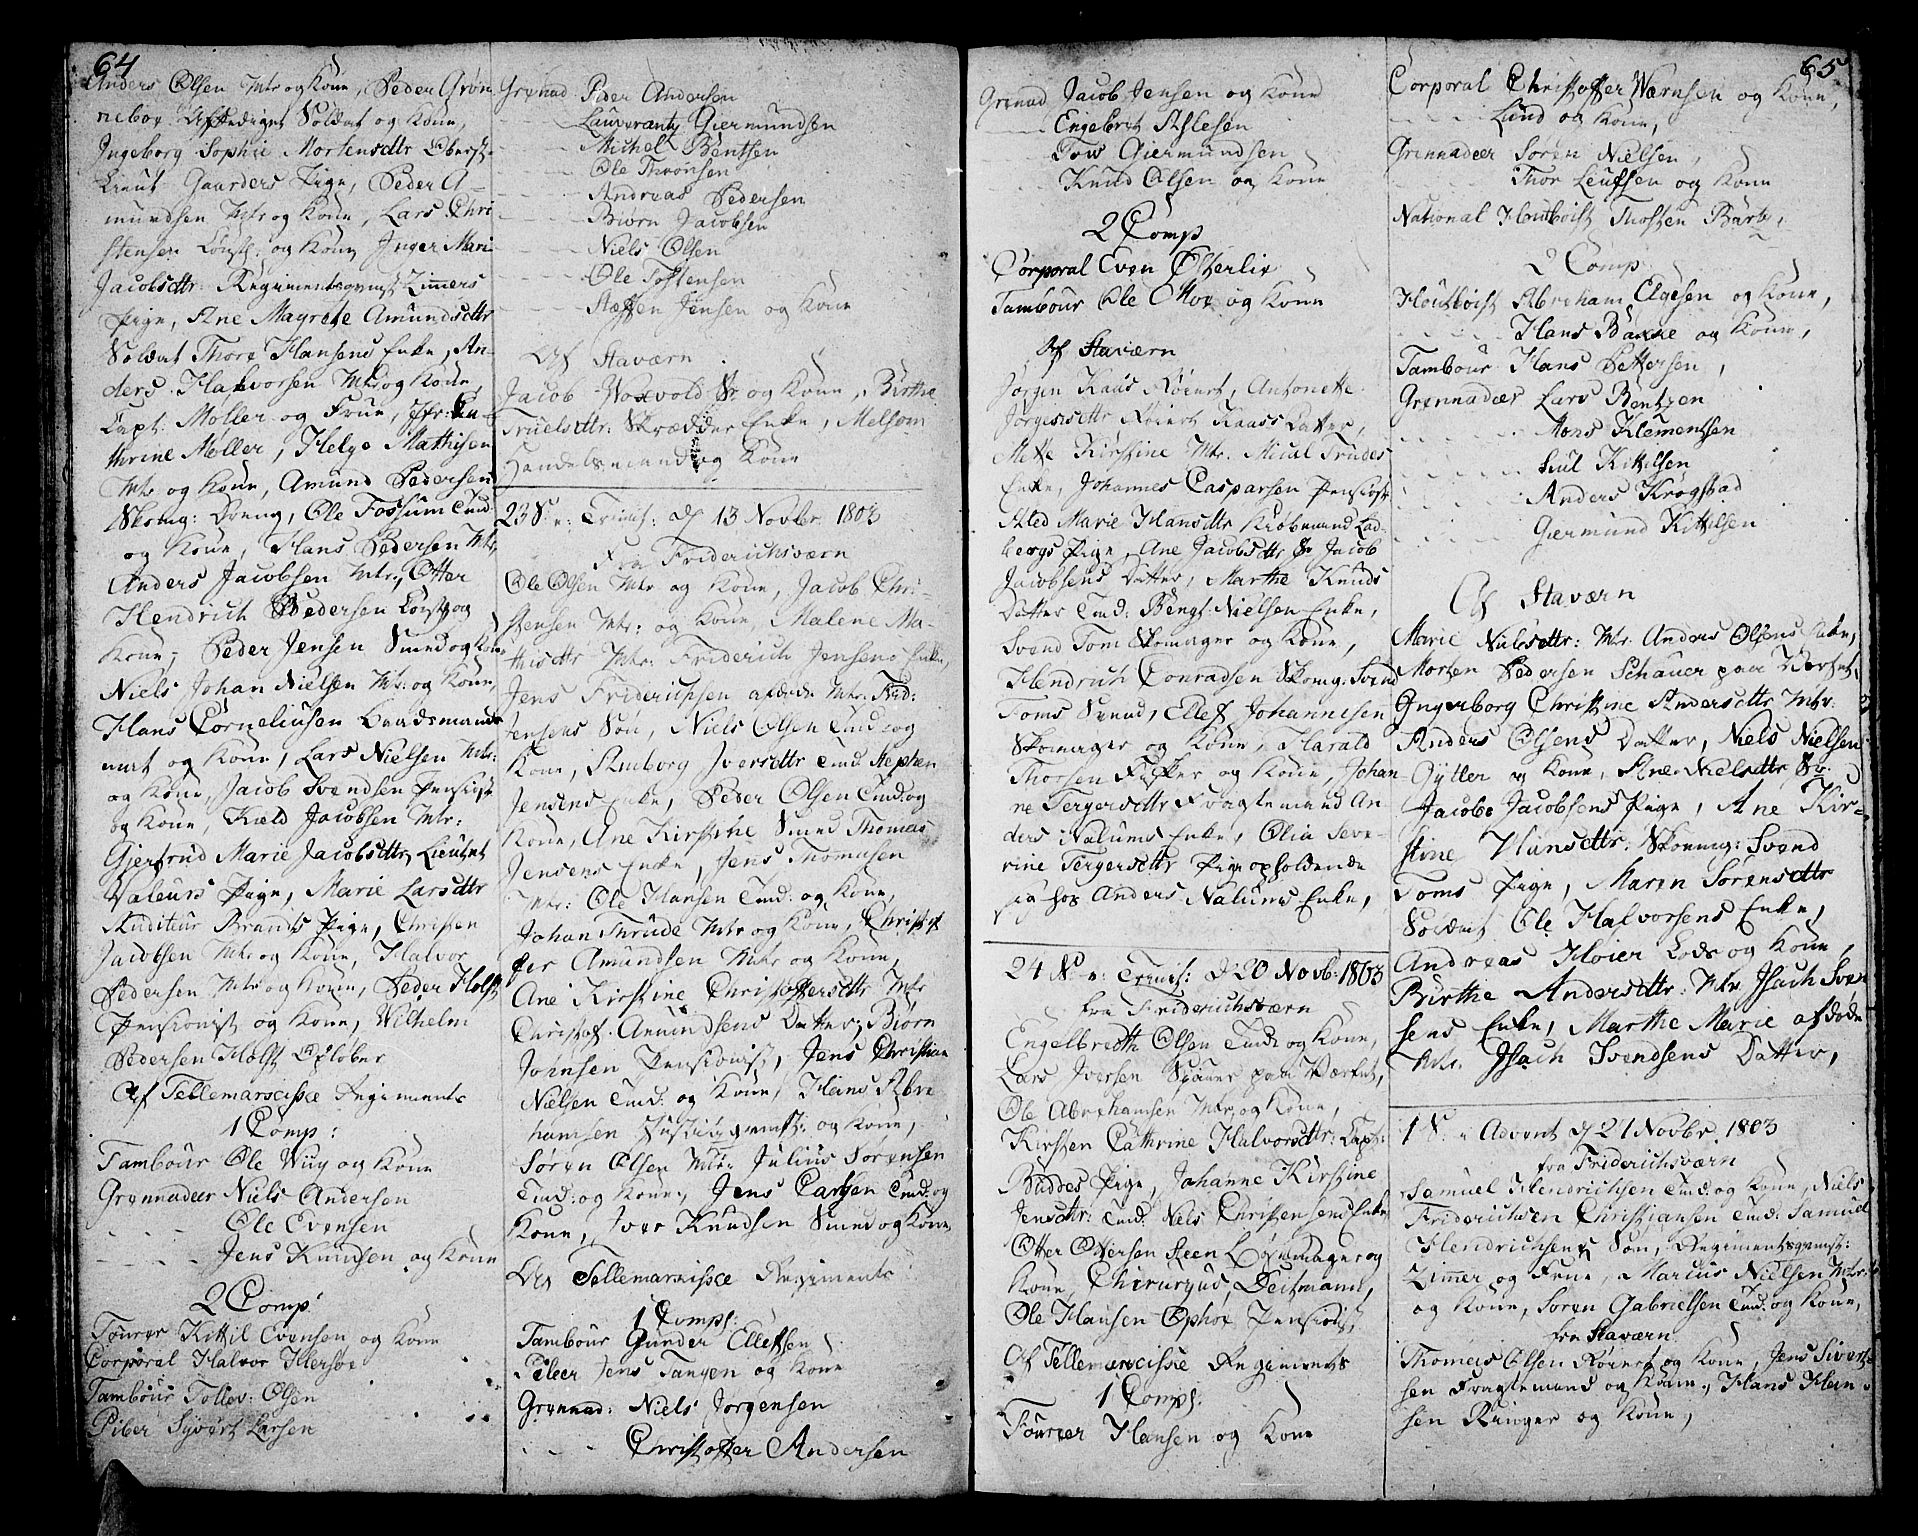 64
Anders Olsen Mtr og Kone, Peder Grøn
neboe Afskediget Soldat og Kone,
Ingeborg Sophie Mortensdttr Oberst-
Lieut Gaarders Pige, Peder A-
mundsen Mtr og Kone, Lars Chri
stensen Const: og Kone Inger Mari
Jacobsdttr: Regimentsqvmst Zimmers
Pige, Ane Magrete Amundsdttr
Soldat Thore Hansens Enke, An-
ders Halvorsen Mtr og Kone,
Capt: Møller og Frue, Jfr: Ca-
thrine Møller, Helge Mathisen
Mtr og Kone, Amund Pedersen
Skomg: Dreng, Ole Fossum Tmd
og Kone, Hans Pedersen Mtr,
Anders Jacobsen Mtr, Otter
Hendrich Pedersen Const og
Kone, Peder Jensen Smed og Kone
Niels Johan Nielsen Mtr og Kone,
Hans Corneliusen Baadsmands
mat og Kone, Lars Nielsen Mtr:
og Kone, Jacob Svendsen Pensist
og Kone, Kield Jacobsen Mtr:
Gjertrud Marie Jacobsdttr, Lieutnt
Valeurs Pige, Marie Larsdttr
Auditeur Brands Pige, Christen
Jacobsen Mtr og Kone, Halvor
Pedersen Mtr og Kone, Peder Holst
Pensionist og Kone, Wilhelm
Pedersen Holst Opløber
Af Tellemarsciske Regiments
1 Comp:
Tambour Ole Wuy og Kone
Grennadeer Niels Andersen
Ole Evensen
Jens Knudsen og Kone
2 Comp:
Fourer Kittil Evensen og Kone
Corporal Halvor Hersøe
Tambour Tollev: Olsen
Piber Syvert Larsen
Grenad: Peder Andersen
Lauverantz Giermundsen
Michel Bentsen
Ole Thronsen
Andreas Pedersen
Biørn Jacobsen
Niels Olsen
Ole Tostensen
Steffen Jensen og Kone
Af Staværn
Jacob Woxvold Sr og Kone, Birthe
Truelsdttr: Skrædder Enke, Melsom
Handelsmand og Kone
23 S: e: Trinit: d 13 Novbr. 1803
Fra Friderichsværn
Ole Olsen Mtr og Kone, Jacob Chri-
stensen Mtr: og Kone, Malene Ma-
thisdttr Mtr: Friderich Jensens Enke,
Jens Friderichsen afdøde Mtr. Frid:
Jensens Søn, Niels Olsen Tmd: og
Kone, Amborg Iversdttr Tmd Stephen
Jensens Enke, Peder Olsen Tmd: og
Kone, Ane Kirstine Smed Thomas
Jensens Enke, Jens Thomasen
Mtr: Ole Hansen Tmd: og Kone,
Johan Thrude Mtr og Kone, Christof
fer Amundsen Mtr og Kone,
Ane Kirstine Christoffersdttr Mtr
Christof: Amundsens Datter, Biørn
Johnsen Pensionist, Jens Christian
Nielsen Tmd: og Kone, Hans Abra
hamsen og Kone,
Søren Olsen Mtr: Julius Sørensen
Tmd: og Kone, Jens Carlsen Tmd: og
Kone, Iver Knudsen Smed og Kone,
Det Tellemarciske Regiments
1 Comps:
Tambour Gunder Ellefsen
Piber Jens Tangen og Kone
Grennad: Niels Jørgensen
Christoffer Andersen
65
Grenad Jacob Jensen og Kone
Engebret Aslesen
Tow Giermundsen
Knud Olsen og Kone
2 Comp
Corporal Even Østerlie
Tambour Ole Moe og Kone
Af Staværn
Jørgen Kaas Røiert, Antonette
Jørgensdttr Røiert Kaass Datter,
Mette Kirstine Mtr. Micul Trudes
Enke, Johannes Caspersen Pensiost
Aled Marie Hansdttr Kiøbmand Lad-
bergs Pige, Ane Jacobsdttr Sr Jacob
Jacobsens Datter, Marthe Knuds
Datter Tmd: Bengt Nielsen Enke,
Svend Tom Skomager og Kone,
Hendrich Conradsen Skomg: Svend
Toms Svend, Ellef Johannesen
Skomager og Kone, Harald
Thorsen Fisker og Kone, Johan
ne Tergersdttr Fragtemand An-
ders Nalums Enke, Olia Seve-
rine Tergersdttr Pige opholdende
sig hos Anders Nalums Enke,
24 S: e: Trinit: d 20 Novb: 1803
fra Friderichsværn
Engelbredth Olsen Tmd: og Kone,
Lars Iversen Skauer paa Værket,
Ole Abrahamsen Mtr og Kone,
Kirsten Cathrine Halvorsdttr: Capt:
Buddes Pige, Johanne Kirstine
Jensdttr: Tmd: Niels Christensens Enke
Otter Ottersen Steen og
Kone, Chirurgus Deitmann,
Ole Hansen Ophoe Pensiost,
Af Tellemarsciske Regiments
1 Comps:
Fourer Hansen og Kone
Corporal Christoffer Wærnsen og Kone,
Lund og Kone,
Grennadeer Søren Nielsen,
Thor Leufsen og Kone
National Houtboist Thosten Barby,
2 Comp:
Houtboist Abraham Elgesen og Kone,
Hans Bakke og Kone,
Tambour Hans Pettersen,
Grennadeer Lars Bentzen
Mons Klementsen
Juul Kittelsen
Anders Krogstad
Giermund Kittelsen
Af Staværn
Marie Nielsdttr: Mtr Anders Olsens Enke,
Morten Pedersen Schauer paa Værket,
Ingerborg Christine Andersdttr Mtr.
Anders Olsens Datter, Niels Nielsen
Gytter og Kone, Ane Nielsdttr Sr.
Jacobs Jacobsens Pige, Ane Kir-
stine Hansdttr: Skomg: Svend
Toms Pige, Maren Sørensdttr
Soldat Ole Halvorsens Enke,
Andreas Høier Lods og Kone,
Birthe Andersdttr: Mtr Isach Sven
sens Enke, Marthe Marie afdøde
Mtr. Isach Svendsens Datter,
1 S: i Advent d 27 Novbr. 1803
fra Friderichsværn
Samuel Hendrichsen Tmd: og Kone, Niels
Friderichsen Christiansen Tmd: Samuel
Hendrichsens Søn, Regimentsqvmst:
Zimmer og Frue, Marcus Nielsen Mtr:
og Kone, Søren Gabrielsen Tmd: og Kone,
fra Staværn
Thomas Olsen Røiert og Kone, Jens Sivert-
sen Fragtemand og Kone, Hans Han
sen Ringer og Kone,